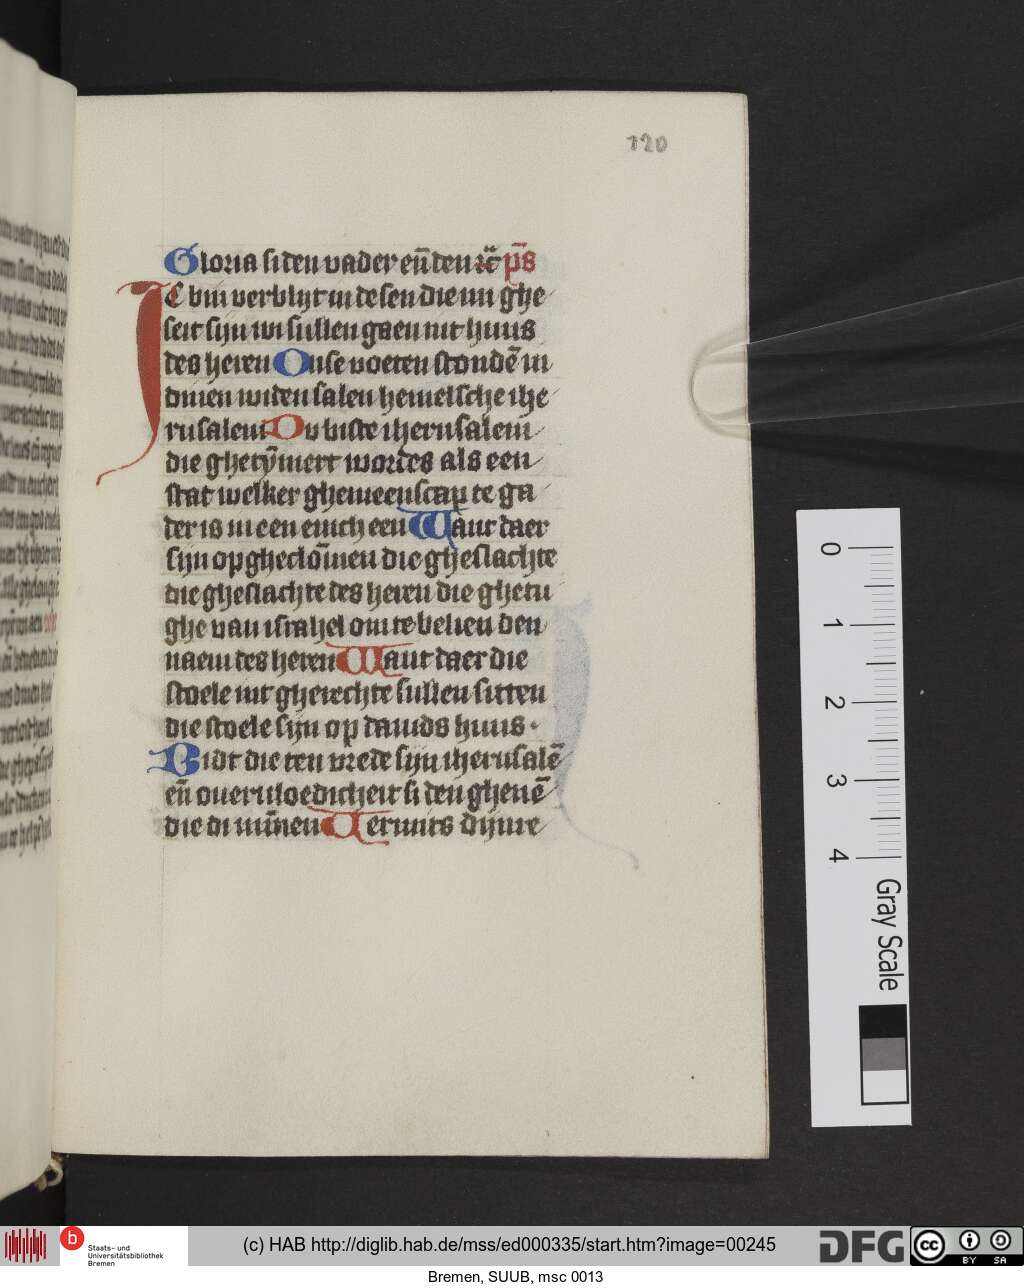 120
Gloria si den vader eñ den ⁊c̃ p̄s
IC bin verblijt in desen die mi ghe
seit sijn wi sullen gaen int huus
des heren Onse voeten stondē in
dinen widen salen hemelsche ihe
rusalem Du biste iherusalem
die ghetȳmert wordes als een
stat welker ghemeenscap te ga
der is in een enich een Want daer
sijn opghecloṁen die gheslachte
die gheslachte des heren die ghetu
ghe van israhel om te belien den
naem des heren Want daer die
stoele int gherechte sullen sitten
die stoele sijn op dauids huus·
Bidt die ten vrede sijn iherusalē
eñ oueruloedicheit si den ghenē
die di miñen Vermits dijnre
0
1
2
3
4
Gray Scale
b
Staats- und
Universitätsbibliothek
Bremen
(c) HAB http://diglib.hab.de/mss/ed000335/start.htm?image=00245
DFG
cc
BY SA
Bremen, SUUB, msc 0013